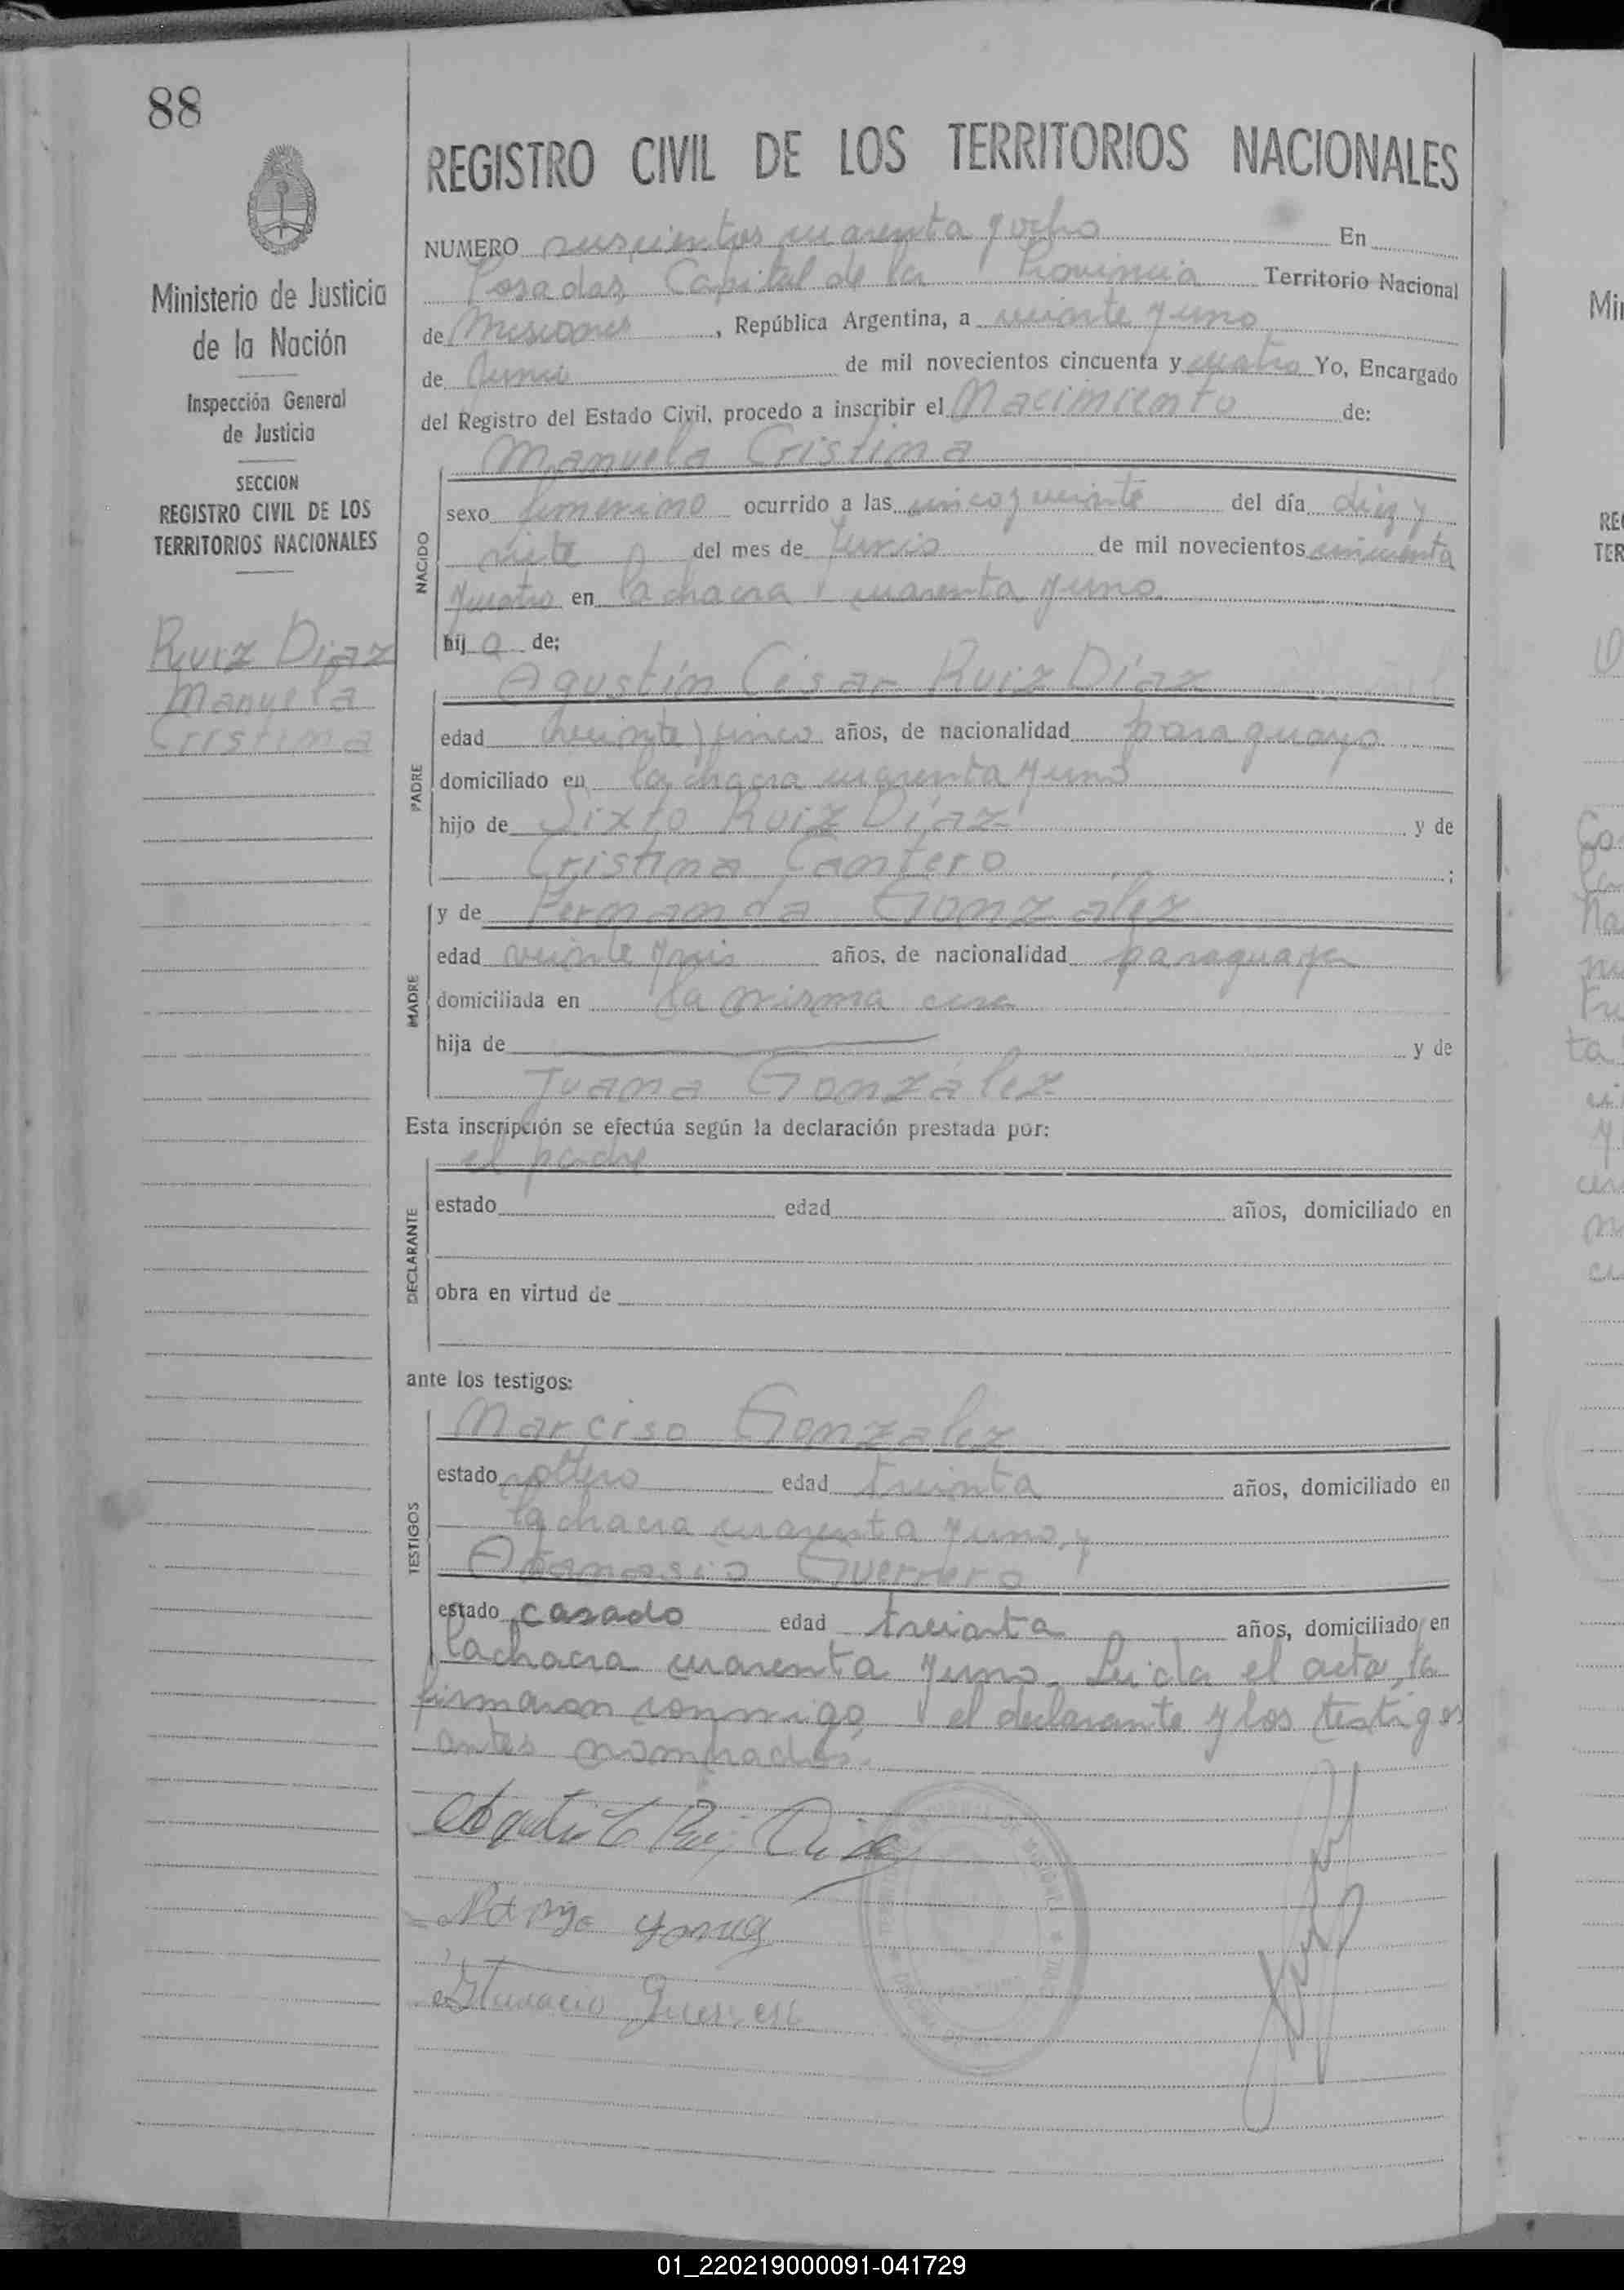 88
REGISTRO CIVIL DE LOS TERRITORIOS NACIONALES
Ministerio de Justicia
de la Nación
Inspección General
de Justicia
SECCION
REGISTRO CIVIL DE LOS
TERRITORIOS NACIONALES
Ruiz Diaz
Manuela
Cristina
NUMERO cuarenta y ocho En
Posadas Capital de la Provincia Territorio Nacional
de Misiones, República Argentina, a veinte y uno
de Junio de mil novecientos cincuenta y cuatro Yo, Encargado
del Registro del Estado Civil, procedo a inscribir el Nacimiento de:
Manuela Cristina
NACIDO
sexo femenino ocurrido a las cinco y veinte del día diez y
siete del mes de Junio de mil novecientos cincuenta
y cuatro en la chacra cuarenta y uno
hij a de:
Agustín César Ruiz Díaz
PADRE
edad treinta y cinco años, de nacionalidad paraguayo
domiciliado en la chacra cuarenta y uno
hijo de Sixto Ruiz Díaz y de
Cristina Cantero ;
MADRE
y de Fernanda González
edad veinte y seis años, de nacionalidad paraguaya
domiciliada en la misma casa
hija de y de
Juana González
Esta inscripción se efectúa según la declaración prestada por:
el padre
DECLARANTE
estado edad años, domiciliado en
obra en virtud de
ante los testigos:
TESTIGOS
Narciso Gonzalez
estado soltero edad treinta años, domiciliado en
la chacra cuarenta y uno, y
Atanasio Guerrero
estado casado edad treinta años, domiciliado en
la chacra cuarenta y uno. Leida el acta, la
firmaron conmigo el declarante y los testigos
antes nombrados.
01_220219000091-041729